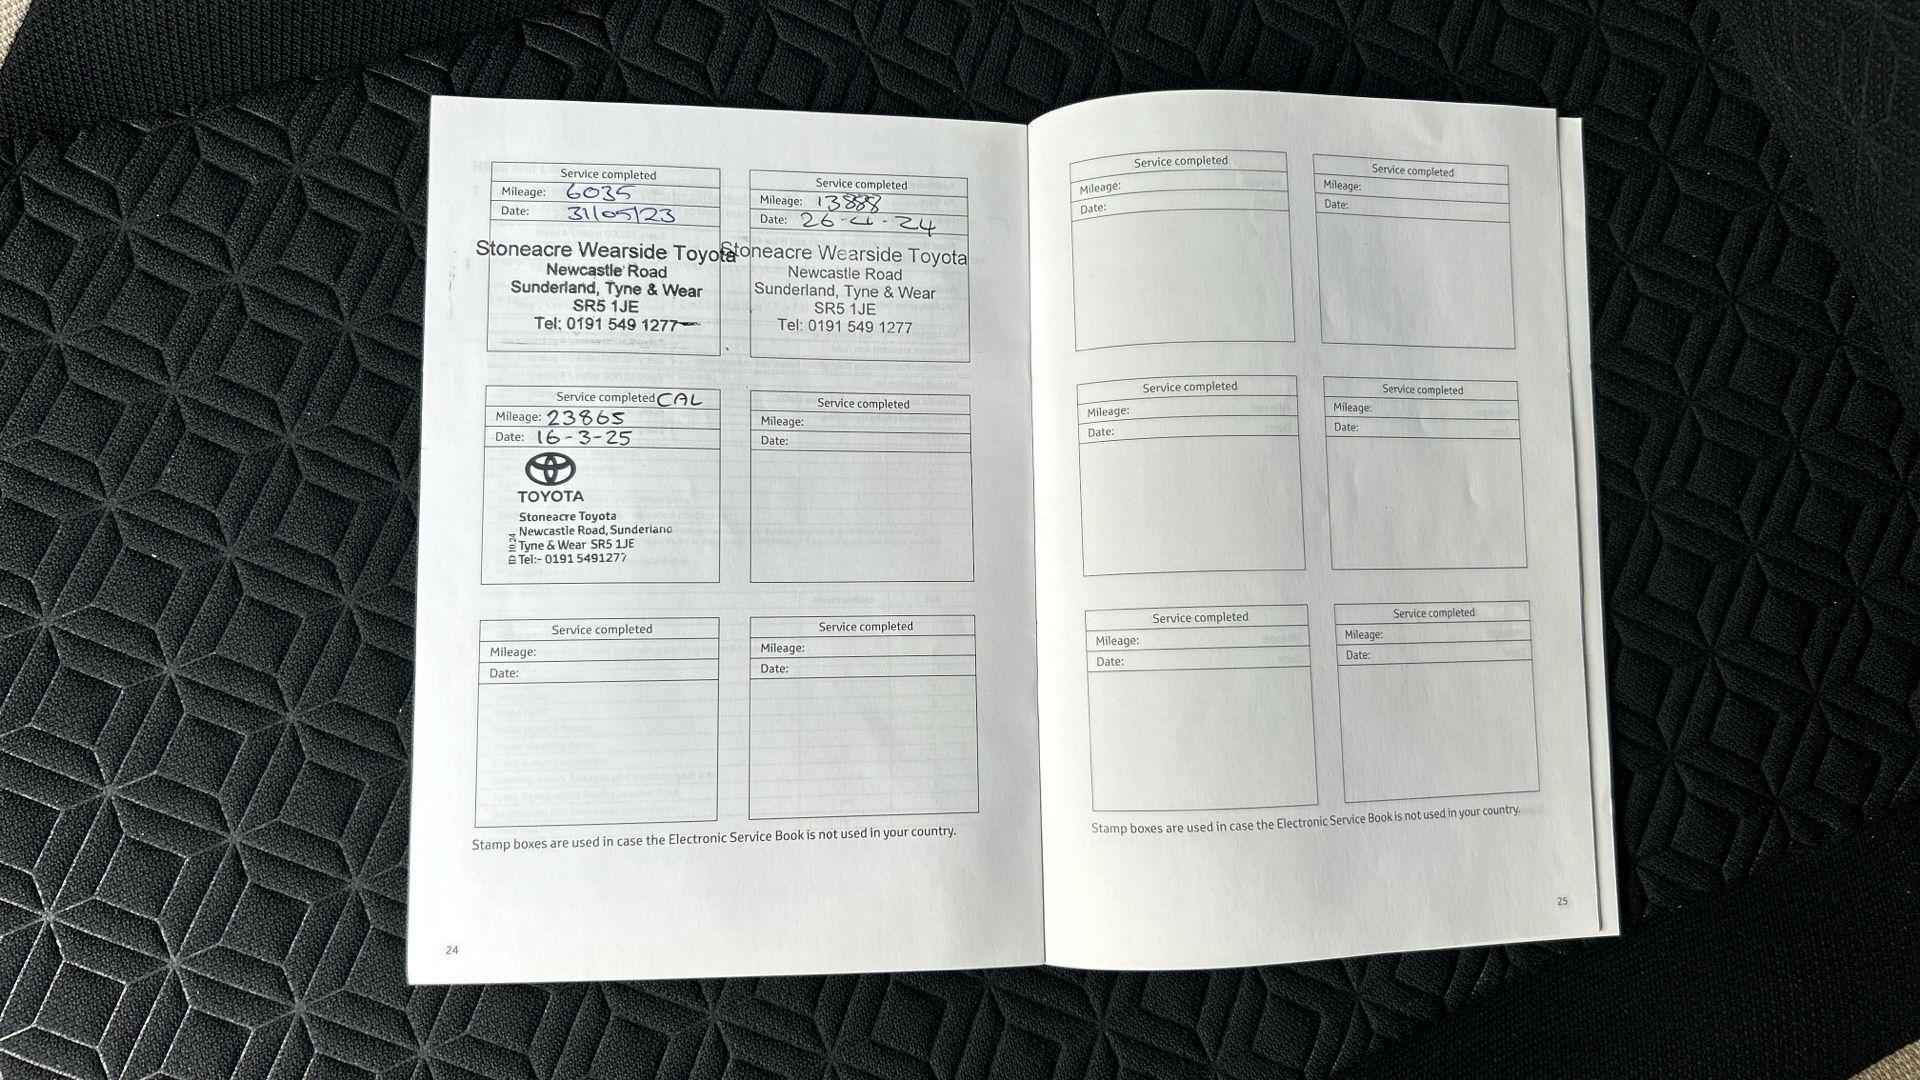 Service completed
Mileage: 6035
Date: 31/05/23
Stoneacre Wearside Toyota
Newcastle Road
Sunderland, Tyne & Wear
SR5 1JE
Tel: 0191 549 1277
Service completed
Mileage: 13888
Date: 26-4-24
Stoneacre Wearside Toyota
Newcastle Road
Sunderland, Tyne & Wear
SR5 1JE
Tel: 0191 549 1277
Service completed CAL
Mileage: 23865
Date: 16-3-25
TOYOTA
Stoneacre Toyota
Newcastle Road, Sunderland
Tyne & Wear SR5 1JE
Tel:- 0191 5491277
ID 10.24
Service completed
Mileage:
Date:
Service completed
Mileage:
Date:
Service completed
Mileage:
Date:
Stamp boxes are used in case the Electronic Service Book is not used in your country.
24
Service completed
Mileage:
Date:
Service completed
Mileage:
Date:
Service completed
Mileage:
Date:
Service completed
Mileage:
Date:
Service completed
Mileage:
Date:
Service completed
Mileage:
Date:
Stamp boxes are used in case the Electronic Service Book is not used in your country.
25